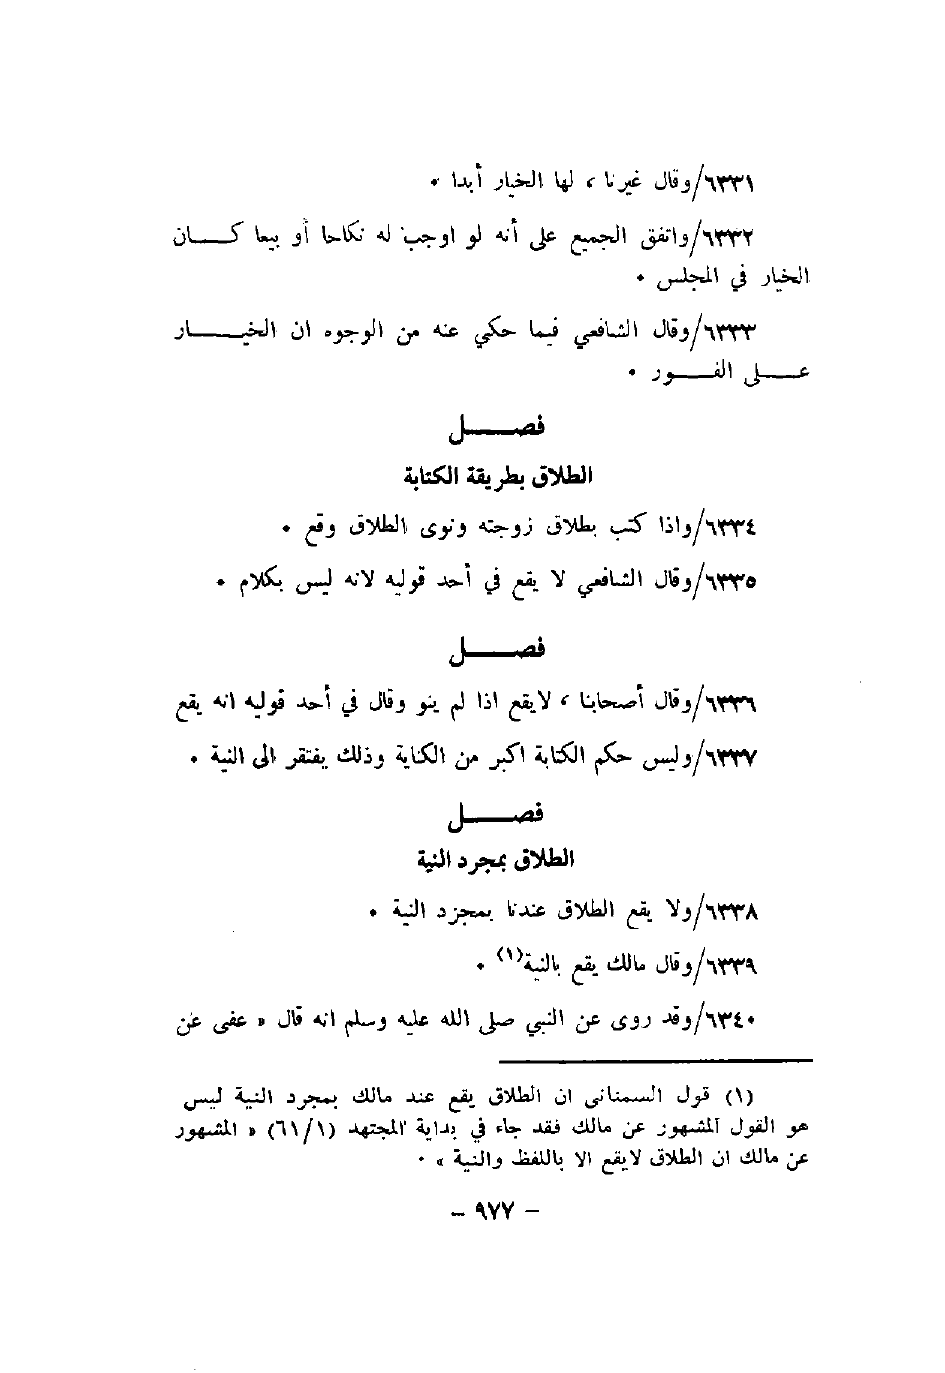 ٦٣٣١/وقال غيرنا ، لها الخيار أبدا .
٦٣٣٢/واتفق الجميع على أنه لو اوجب له نكاحا أو بيعا كـــان
الخيار في المجلس .
٦٣٣٣/وقال الشافعي فيما حكي عنه من الوجوه ان الخيـــار
عـــلى الفـــور .
فصـــل
الطلاق بطريقة الكتابة
٦٣٣٤/واذا كتب بطلاق زوجته ونوى الطلاق وقع .
٦٣٣٥/وقال الشافعي لا يقع في أحد قوليه لانه ليس بكلام .
فصـــل
٦٣٣٦/وقال أصحابنا ، لايقع اذا لم ينو وقال في أحد قوليه انه يقع
٦٣٣٧/وليس حكم الكتابة اكبر من الكناية وذلك يفتقر الى النية .
فصـــل
الطلاق بمجرد النية
٦٣٣٨/ولا يقع الطلاق عندنا بمجرد النية .
٦٣٣٩/وقال مالك يقع بالنية(١) .
٦٣٤٠/وقد روى عن النبي صلى الله عليه وسلم انه قال « عفى عن
(١) قول السمنانى ان الطلاق يقع عند مالك بمجرد النية ليس
هو القول المشهور عن مالك فقد جاء في بداية المجتهد (٦١/١) « المشهور
عن مالك ان الطلاق لايقع الا باللفظ والنية » .
– ٩٧٧ –